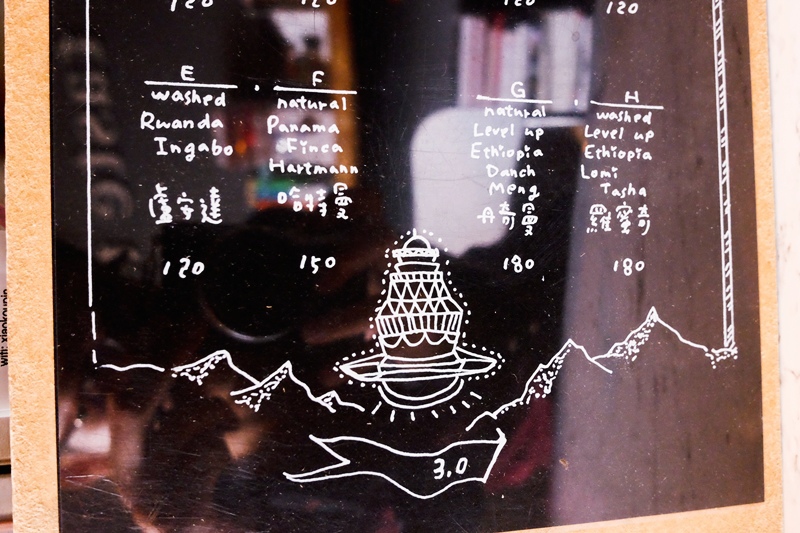 120 120 120 120
E
washed
Rwanda
Ingabo
盧安達
120
F
natural
Panama
Finca
Hartmann
哈特曼
150
G
natural
Level up
Ethiopia
Danch
Meng
丹奇靈
180
H
washed
Level up
Ethiopia
Lomi
Tasha
羅蜜奇
180
3.0
wifi: xiaokoupin